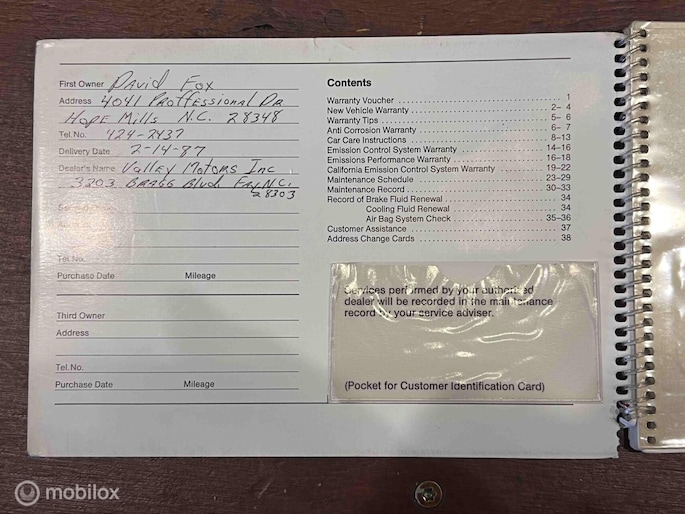 First Owner David Fox
Address 4041 Proffessional Dr
Hope Mills N.C. 28348
Tel. No. 424-2437
Delivery Date 2-14-87
Dealer's Name Valley Motors Inc
3303 Bragg Blvd Fay N.C.
28303
Tel. No.
Purchase Date Mileage
Third Owner
Address
Tel. No.
Purchase Date Mileage
Contents
Warranty Voucher 1
New Vehicle Warranty 2– 4
Warranty Tips 5– 6
Anti Corrosion Warranty 6– 7
Car Care Instructions 8–13
Emission Control System Warranty 14–16
Emissions Performance Warranty 16–18
California Emission Control System Warranty 19–22
Maintenance Schedule 23–29
Maintenance Record 30–33
Record of Brake Fluid Renewal 34
Cooling Fluid Renewal 34
Air Bag System Check 35–36
Customer Assistance 37
Address Change Cards 38
Services performed by your authorised
dealer will be recorded in the maintenance
record by your service adviser.
(Pocket for Customer Identification Card)
mobilox